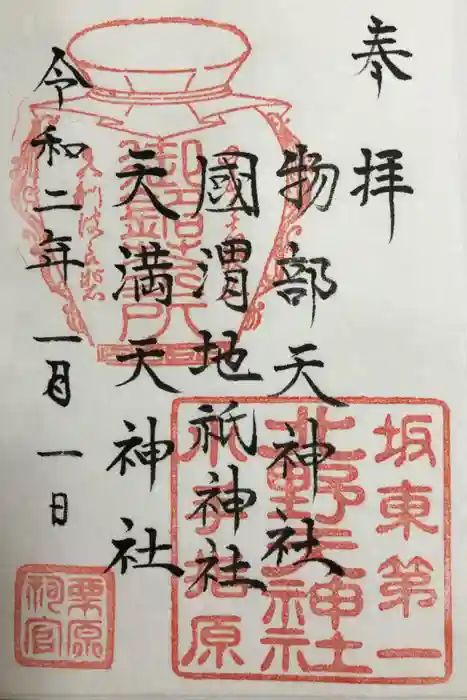 奉拝
物部天神社
國渭地祇神社
天満天神社
令和二年 一月 一日
坂東第一
北野三神社
栗原
祠官